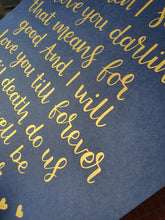 love you darlin
that means for
good And I will
love you till forever
till death do us